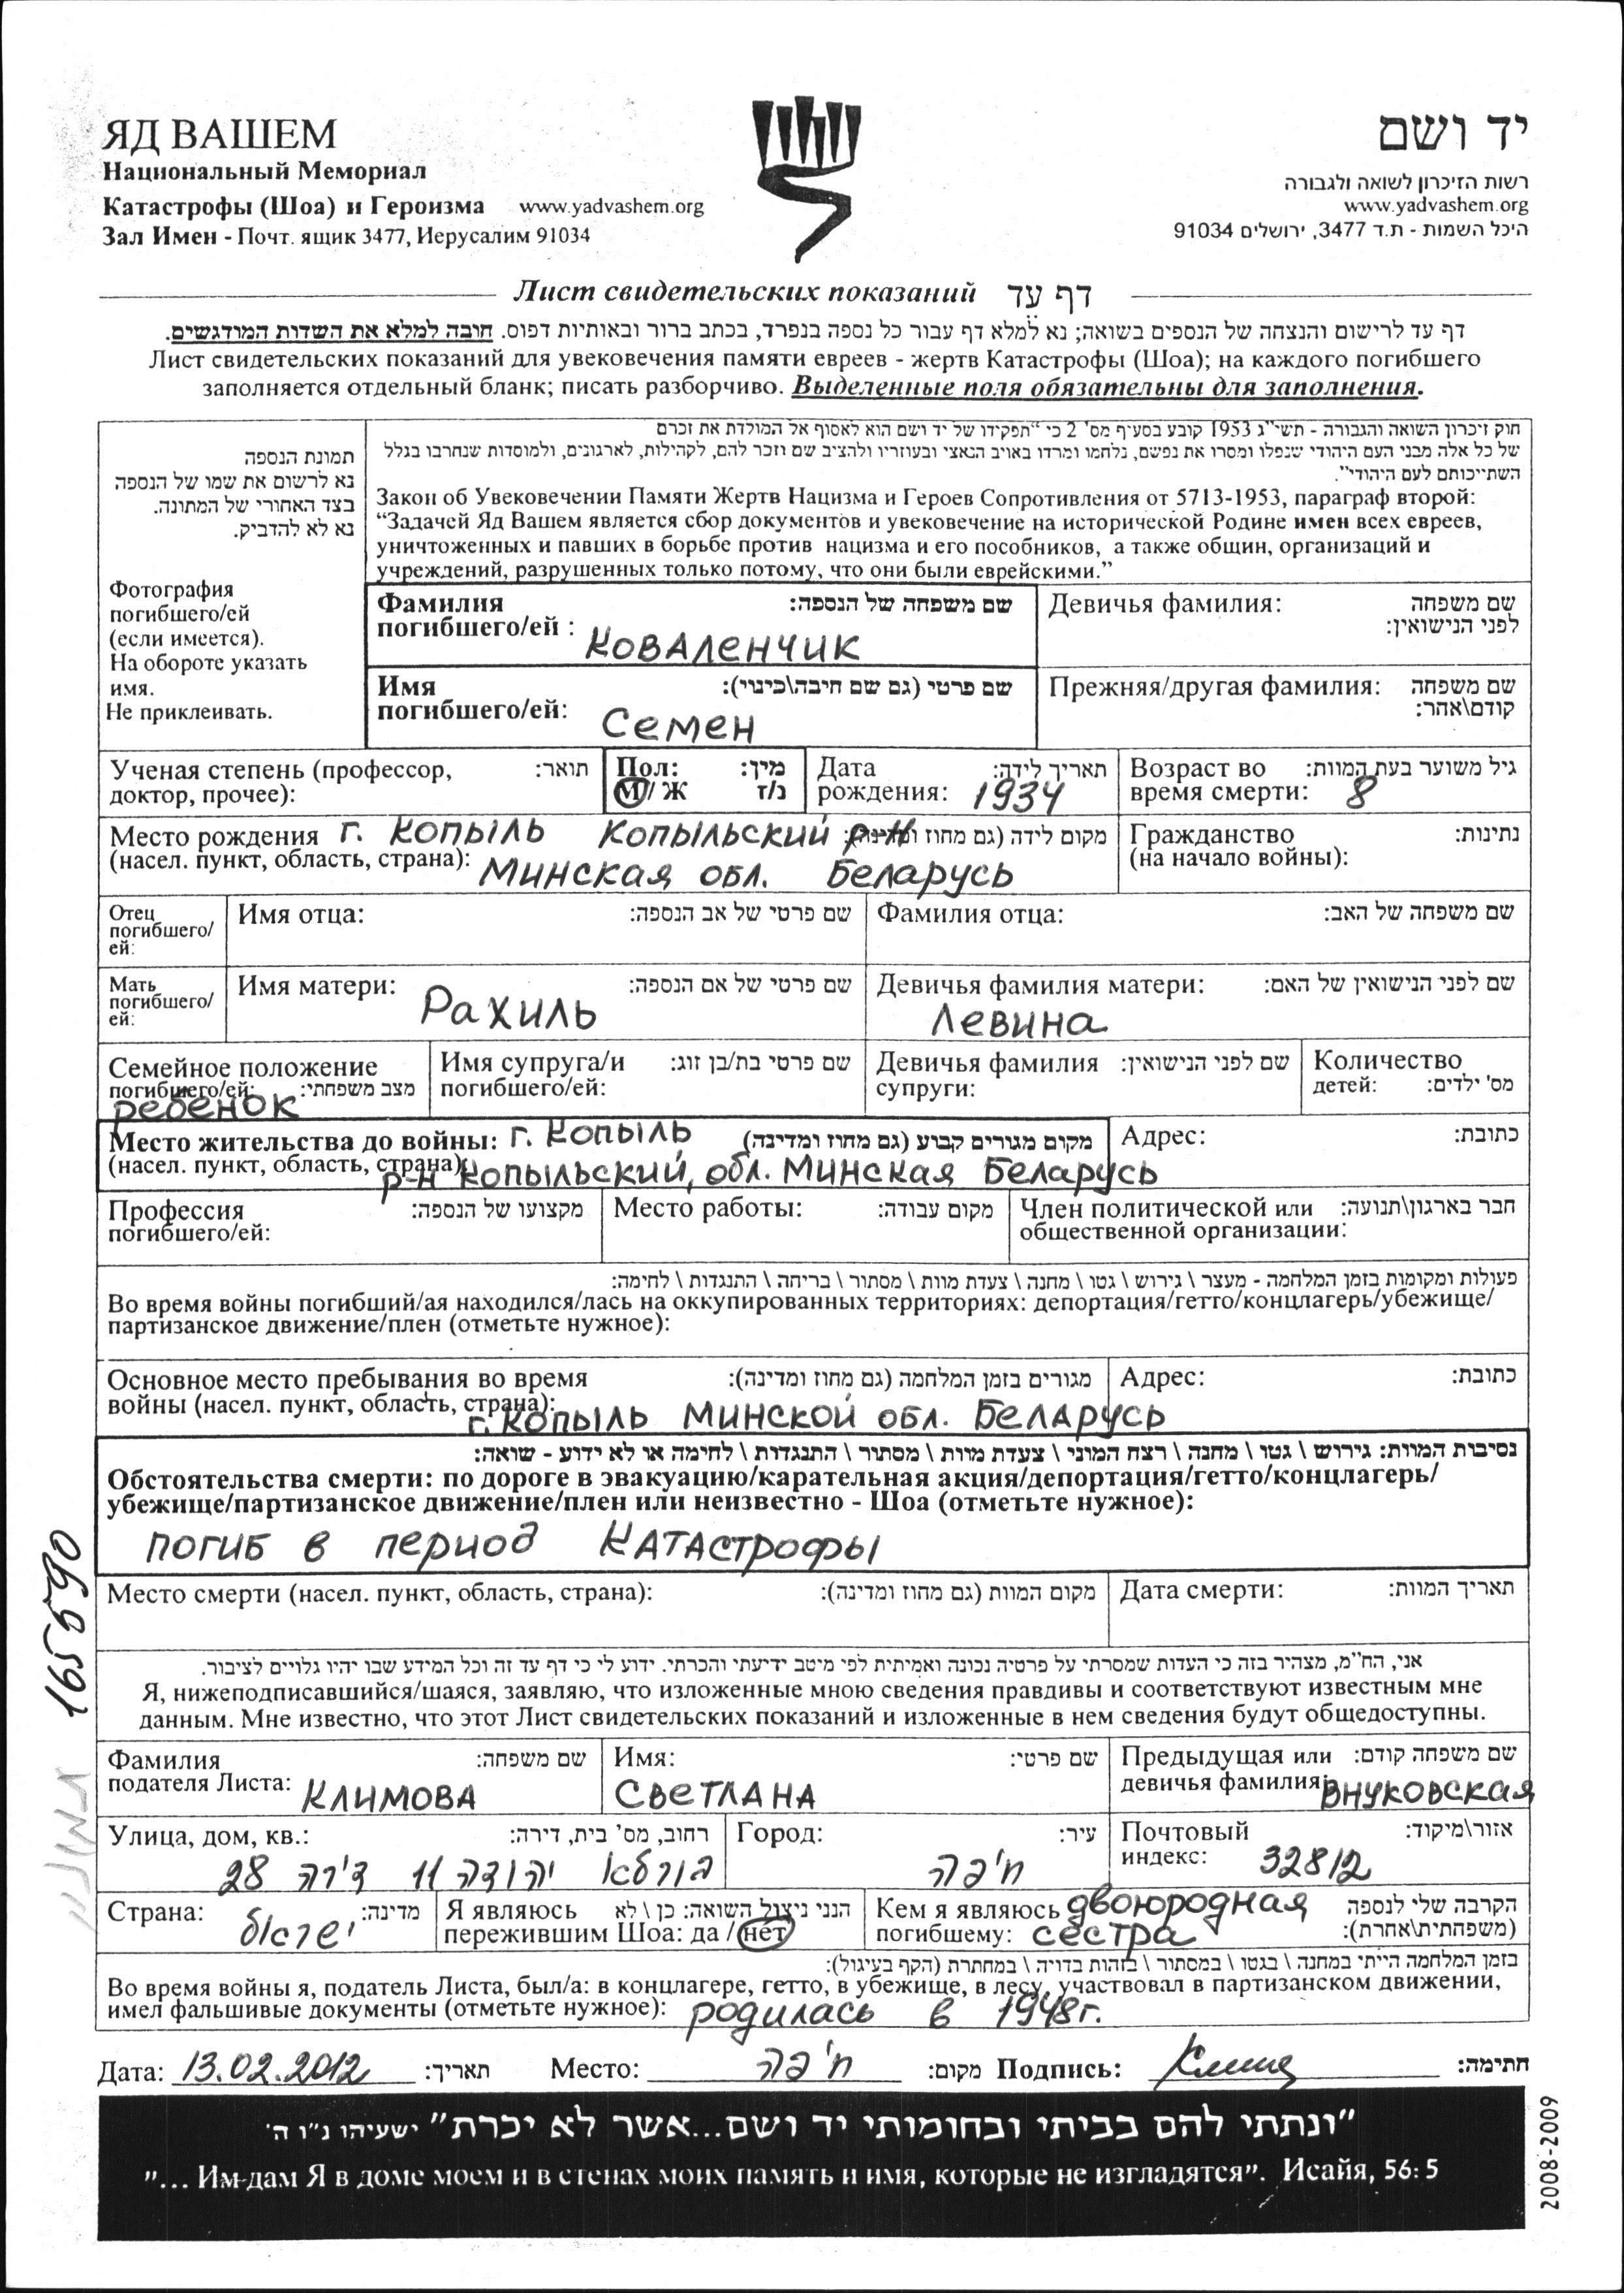 ЯД ВАШЕМ
Национальный Мемориал
Катастрофы (Шоа) и Героизма www.yadvashem.org
Зал Имен - Почт. ящик 3477, Иерусалим 91034
יד ושם
רשות הזיכרון לשואה ולגבורה
www.yadvashem.org
היכל השמות - ת.ד 3477, ירושלים 91034
Лист свидетельских показаний דף עד
דף עד לרישום והנצחה של הנספים בשואה; נא למלא דף עבור כל נספה בנפרד, בכתב ברור ובאותיות דפוס. חובה למלא את השדות המודגשים.
Лист свидетельских показаний для увековечения памяти евреев - жертв Катастрофы (Шоа); на каждого погибшего
заполняется отдельный бланк; писать разборчиво. Выделенные поля обязательны для заполнения.
תמונת הנספה
נא לרשום את שמו של הנספה
בצד האחורי של המתונה.
נא לא להדביק.
Фотография
погибшего/ей
(если имеется).
На обороте указать
имя.
Не приклеивать.
חוק זיכרון השואה והגבורה - תשי״ג 1953 קובע בסעיף מס' 2 כי "תפקידו של יד ושם הוא לאסוף אל המולדת את זכרם
של כל אלה מבני העם היהודי שנפלו ומסרו את נפשם, נלחמו ומרדו באויב הנאצי ובעוזריו ולהציב שם וזכר להם, לקהילות, לארגונים, ולמוסדות שנחרבו בגלל
השתייכותם לעם היהודי".
Закон об Увековечении Памяти Жертв Нацизма и Героев Сопротивления от 5713-1953, параграф второй:
“Задачей Яд Вашем является сбор документов и увековечение на исторической Родине имен всех евреев,
уничтоженных и павших в борьбе против нацизма и его пособников, а также общин, организаций и
учреждений, разрушенных только потому, что они были еврейскими.”
Фамилия שם משפחה של הנספה:
погибшего/ей : Коваленчик
Девичья фамилия: שם משפחה
לפני הנישואין:
Имя שם פרטי (גם שם חיבה\כינוי):
погибшего/ей: Семен
Прежняя/другая фамилия: שם משפחה
קודם\אחר:
Ученая степень (профессор, תואר:
доктор, прочее):
Пол: מין:
М / Ж ז/נ
Дата תאריך לידה:
рождения: 1934
Возраст во גיל משוער בעת המוות:
время смерти: 8
Место рождения г. Копыль Копыльский р-н מקום לידה (גם מחוז ומדינה):
(насел. пункт, область, страна): Минская обл. Беларусь
Гражданство נתינות:
(на начало войны):
Отец
погибшего/
ей:
Имя отца: שם פרטי של אב הנספה:
Фамилия отца: שם משפחה של האב:
Мать
погибшего/
ей:
Имя матери: שם פרטי של אם הנספה:
Рахиль
Девичья фамилия матери: שם לפני הנישואין של האם:
Левина
Семейное положение
погибшего/ей: מצב משפחתי:
ребенок
Имя супруга/и שם פרטי בת/בן זוג:
погибшего/ей:
Девичья фамилия שם לפני הנישואין:
супруги:
Количество
детей: מס' ילדים:
Место жительства до войны: г. Копыль מקום מגורים קבוע (גם מחוז ומדינה)
(насел. пункт, область, страна):
р-н Копыльский, обл. Минская Беларусь
Адрес: כתובת:
Профессия מקצועו של הנספה:
погибшего/ей:
Место работы: מקום עבודה:
Член политической или חבר בארגון\תנועה:
общественной организации:
פעולות ומקומות בזמן המלחמה - מעצר \ גירוש \ גטו \ מחנה \ צעדת מוות \ מסתור \ בריחה \ התנגדות \ לחימה:
Во время войны погибший/ая находился/лась на оккупированных территориях: депортация/гетто/концлагерь/убежище/
партизанское движение/плен (отметьте нужное):
Основное место пребывания во время מגורים בזמן המלחמה (גם מחוז ומדינה):
войны (насел. пункт, область, страна):
г. Копыль Минской обл. Беларусь
Адрес: כתובת:
נסיבות המוות: גירוש \ גטו \ מחנה \ רצח המוני \ צעדת מוות \ מסתור \ התנגדות \ לחימה או לא ידוע - שואה:
Обстоятельства смерти: по дороге в эвакуацию/карательная акция/депортация/гетто/концлагерь/
убежище/партизанское движение/плен или неизвестно - Шоа (отметьте нужное):
погиб в период Катастрофы
Место смерти (насел. пункт, область, страна): מקום המוות (גם מחוז ומדינה):
Дата смерти: תאריך המוות:
אני, הח״מ, מצהיר בזה כי העדות שמסרתי על פרטיה נכונה ואמיתית לפי מיטב ידיעתי והכרתי. ידוע לי כי דף עד זה וכל המידע שבו יהיו גלויים לציבור.
Я, нижеподписавшийся/шаяся, заявляю, что изложенные мною сведения правдивы и соответствуют известным мне
данным. Мне известно, что этот Лист свидетельских показаний и изложенные в нем сведения будут общедоступны.
Фамилия שם משפחה:
подателя Листа: Климова
Имя: שם פרטי:
Светлана
Предыдущая или שם משפחה קודם:
девичья фамилия: Внуковская
Улица, дом, кв.: רחוב, מס' בית, דירה:
יהודה 11 דירה 28
Город: עיר:
חיפה
Почтовый אזור\מיקוד:
индекс: 32812
Страна: מדינה:
ישראל
Я являюсь הנני ניצול השואה: כן \ לא
пережившим Шоа: да / нет
Кем я являюсь двоюродная הקרבה שלי לנספה
погибшему: сестра (משפחתית\אחרת):
בזמן המלחמה הייתי במחנה \ בגטו \ במסתור \ בזהות בדויה \ במחתרת (הקף בעיגול):
Во время войны я, податель Листа, был/а: в концлагере, гетто, в убежище, в лесу, участвовал в партизанском движении,
имел фальшивые документы (отметьте нужное): родилась в 1948г.
Дата: 13.02.2012 תאריך: Место: חיפה מקום: Подпись: חתימה:
"ונתתי להם בביתי ובחומותי יד ושם...אשר לא יכרת" ישעיהו נ״ו ה'
"... Им дам Я в доме моем и в стенах моих память и имя, которые не изгладятся”. Исайя, 56: 5
165590
2008-2009